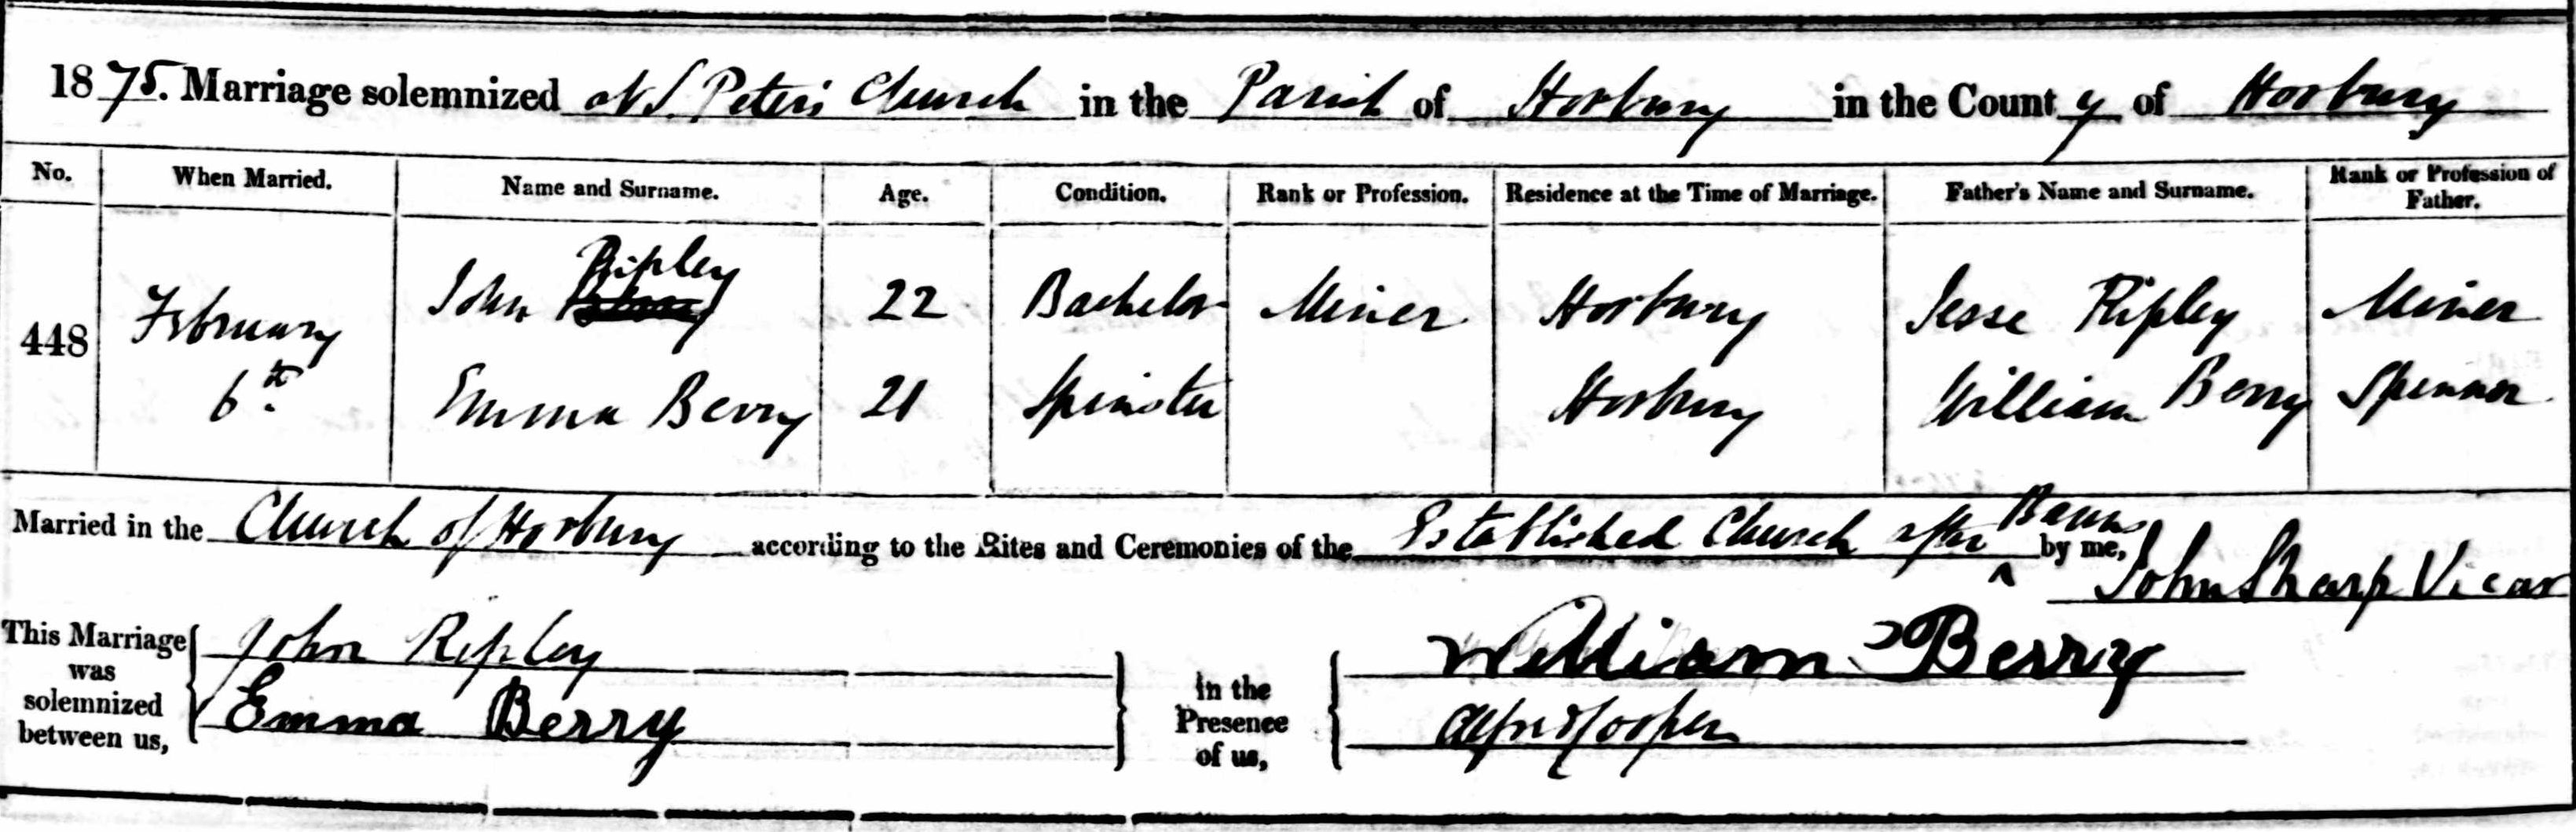 1875. Marriage solemnized at S. Peter's Church in the Parish of Horbury in the County of Horbury
No. When Married. Name and Surname. Age. Condition. Rank or Profession. Residence at the Time of Marriage. Father's Name and Surname. Rank or Profession of Father.
Ripley
448 February John 22 Bachelor Miner Horbury Jesse Ripley Miner
6th Emma Berry 21 Spinster Horbury William Berry Spinner
Married in the Church of Horbury according to the Rites and Ceremonies of the Established Church after Banns by me,
John Sharp Vicar
This Marriage was solemnized between us,
John Ripley
Emma Berry
in the Presence of us,
William Berry
Alfred Cooper